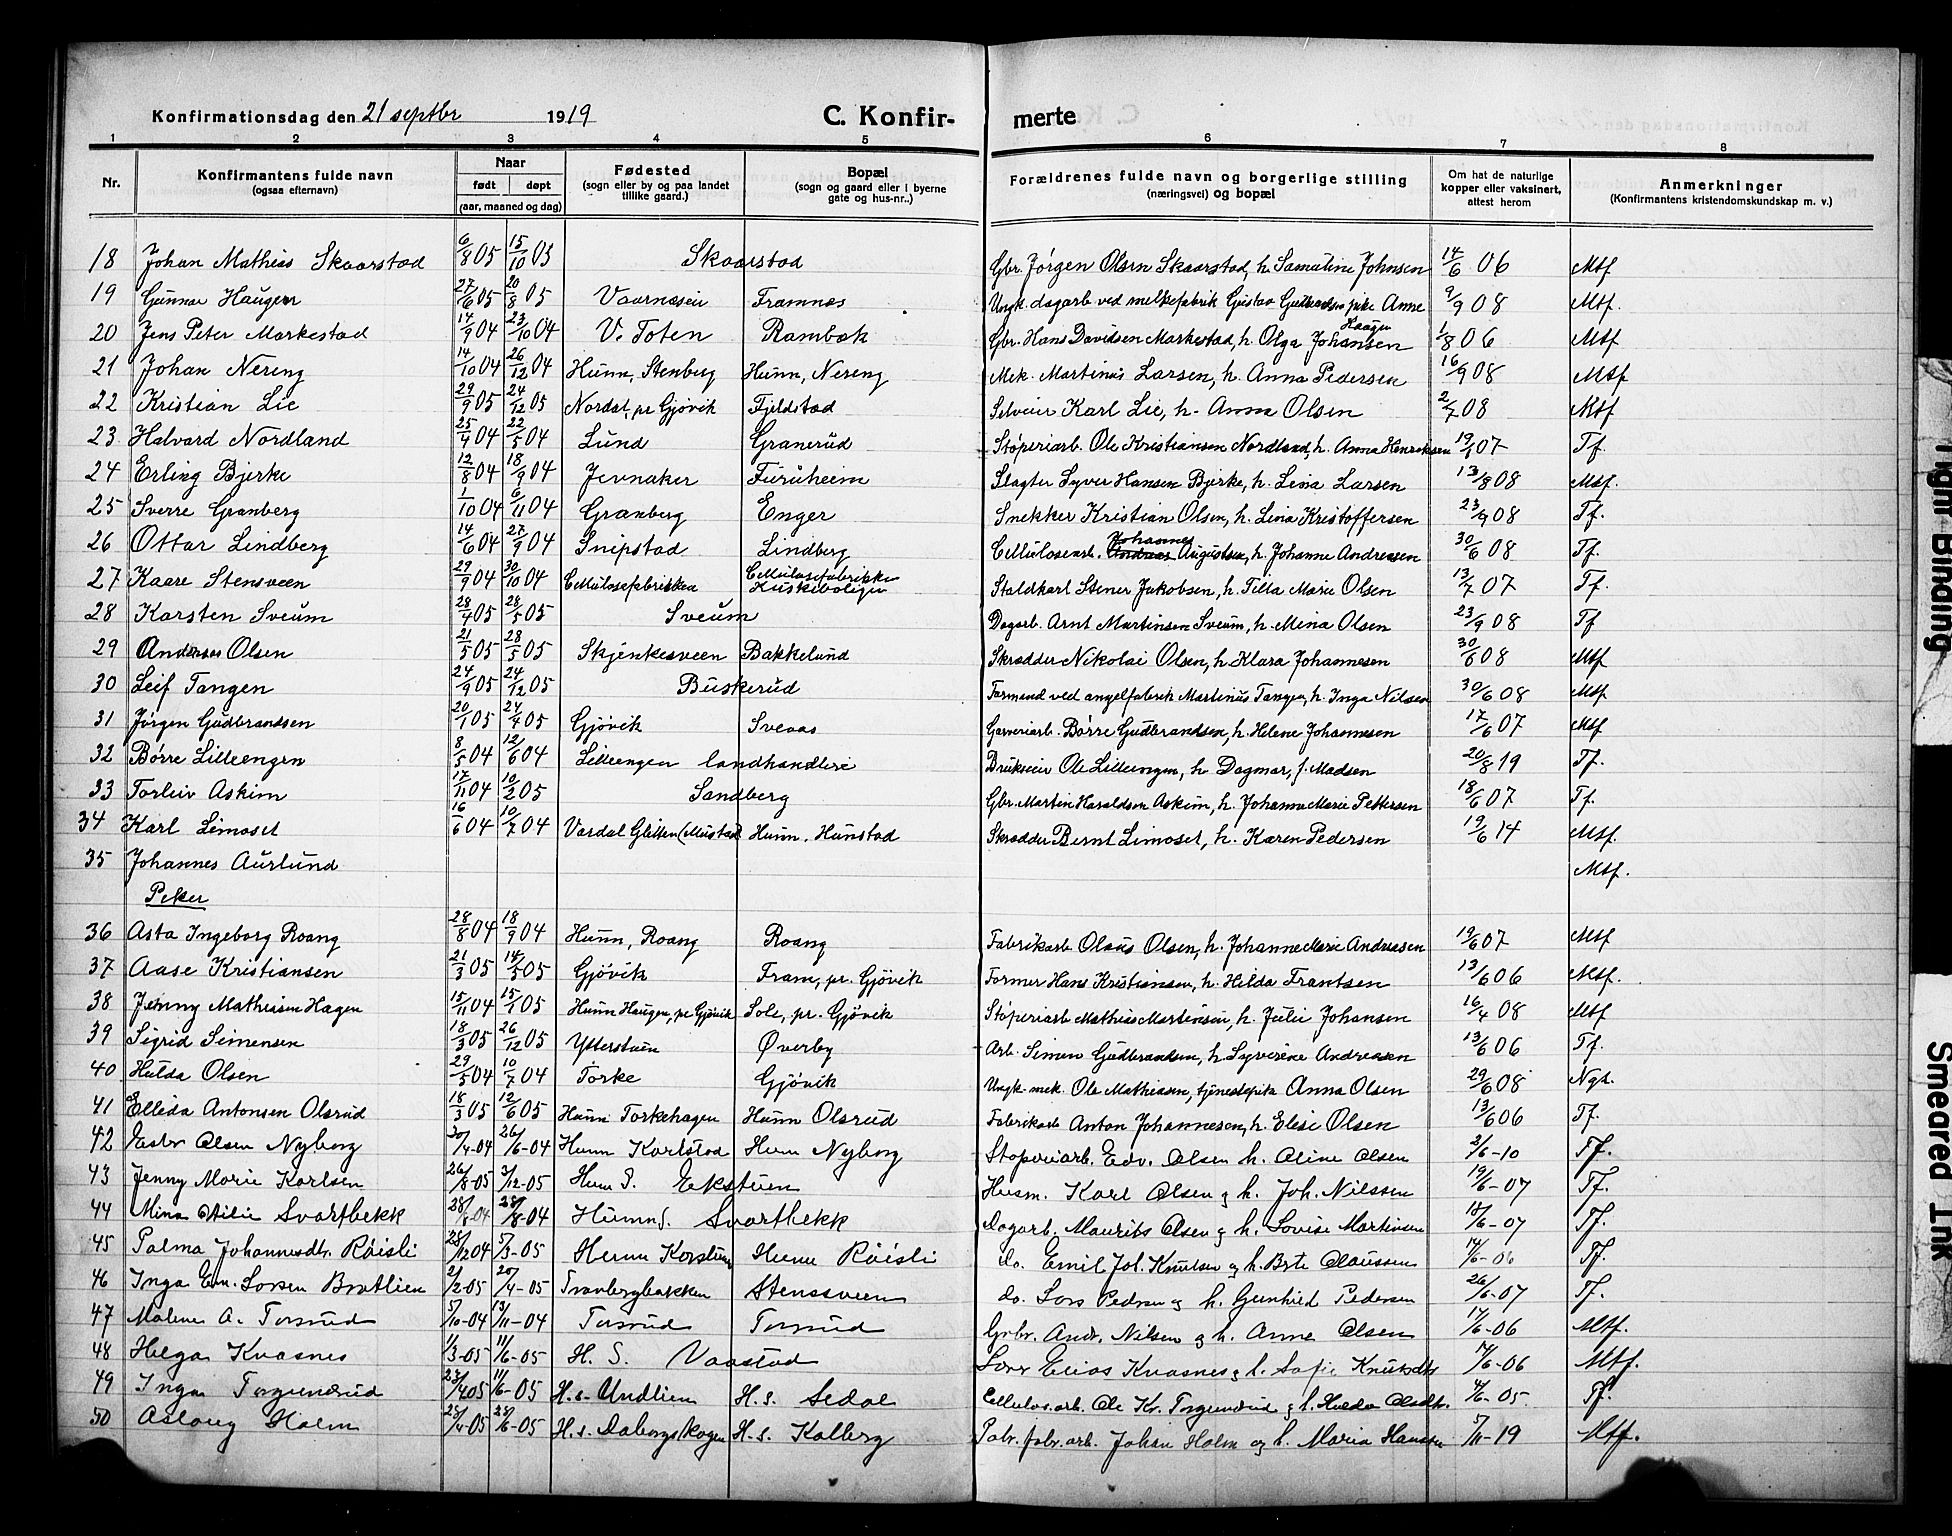 Konfirmationsdag den 21 septbr 1919 C. Konfir- merte
1 2 3 4 5 6 7 8
Nr. Konfirmantens fulde navn (ogsaa efternavn) Naar født døpt (aar, maaned og dag) Fødested (sogn eller by og paa landet tillike gaard.) Bopæl (sogn og gaard eller i byerne gate og hus-nr..) Forældrenes fulde navn og borgerlige stilling (næringsvei) og bopæl Om hat de naturlige kopper eller vaksinert, attest herom Anmerkninger (Konfirmantens kristendomskundskap m. v.)
18 Johan Mathias Skaarstad 6/8 05 15/10 05 Skaarstad Gbr. Jørgen Olsen Skaarstad, h. Samuline Johnsen 14/6 06 Mtf
19 Gunnar Haugen 27/6 05 20/8 05 Vaarnæseie Framnæs Ungk. dagarb. ved melkefabrik Gustav Gulbrandsen pike Anne Haagen 9/9 08 Mtf.
20 Jens Peter Markestad 14/9 04 23/10 04 V. Toten Rambæk Gbr. Hans Davidsen Markestad, h. Olga Johansen 1/8 06 Mtf
21 Johan Nereng 14/10 04 26/12 04 Hunn, Stenberg Hunn, Nereng Mek. Martinus Larsen, h. Anna Pedersen 16/9 08 Mtf
22 Kristian Lie 29/9 05 24/12 05 Nordal, pr Gjøvik Fjeldstad Selveier Karl Lie, h. Anna Olsen 2/7 08 Mtf
23 Halvard Nordland 25/4 04 22/5 04 Lund Granerud Støperiarb. Ole Kristiansen Nordland, h. Anna Henriksen 19/1 07 Tf.
24 Erling Bjerke 12/8 04 18/9 04 Jevnaker Furuheim Slagter Syver Hansen Bjerke, h. Lina Larsen 13/8 08 Mtf.
25 Sverre Granberg 1/10 04 6/11 04 Granberg Enger Snekker Kristian Olsen, h. Lina Kristoffersen 23/9 08 Tf.
26 Ottar Lindberg 14/6 04 27/9 04 Snipstad Lindberg Cellulosearb. Johannes Andreas Augustsen, h. Johanne Andreasen 30/6 08 Tf.
27 Kaare Stensveen 29/9 04 30/10 04 Cellulosefabrikken Cellulosefabrikke Kuskeboligen Staldkarl Stener Jakobsen, h. Tilla Marie Olsen 13/7 07 Tf.
28 Karsten Sveum 28/4 05 28/5 05 Sveum Dagarb. Arnt Martinsen Sveum, h. Mina Olsen 23/9 08 Tf
29 Anderses Olsen 21/5 05 28/5 05 Skjenkesveen Bakkelund Skrædder Nikolai Olsen, h. Klara Johannesen 30/6 08 Mtf
30 Leif Tangen 24/9 05 24/12 05 Buskerud Formand ved angelfabrik Martinus Tangen, h. Inga Nilsen 30/6 08 Mtf
31 Jørgen Gudbrandsen 20/1 05 24/4 05 Gjøvik Sveaas Garveriarb. Børre Gudbrandsen, h. Helene Johannesen 17/6 07 Mtf
32 Børre Lilleengen 8/5 04 12/6 04 Lilleengen landhandleri Brukseier Ole Lilleengen, h. Dagmar, f. Madsen 20/8 19 Tf.
33 Torleiv Askim 17/11 04 10/2 05 Sandberg Gbr. Martin Haraldsen Askim, h. Johanne Marie Pettersen 18/6 07 Tf.
34 Karl Limoset 16/6 04 10/7 04 Vardal Glitten (Mustad) Hunn, Hunstad Skrædder Bernt Limoset, h. Karen Pedersen 19/6 14 Mtf.
35 Johannes Aurlund Mtf.
Piker
36 Asta Ingeborg Roang 28/8 04 18/9 04 Hunn, Roang Roang Fabrikarb. Olaus Olsen, h. Johanne Marie Andreasen 19/6 07 Mtf
37 Aase Kristiansen 21/3 05 14/5 05 Gjøvik Fram, pr. Gjøvik Former Hans Kristiansen, h. Hilda Frantsen 13/6 06 Mtf.
38 Jenny Mathiasen Hagen 15/11 04 15/1 05 Hunn Haugen, pr Gjøvik Sole, pr. Gjøvik Støperiarb Mathias Martinsen, h. Julie Johansen 16/4 08 Mtf
39 Sigrid Simensen 18/3 05 26/12 05 Ytterstuen Øverby Arb. Simen Gudbrandsen, h. Syverine Andreasen 13/6 06 Tf.
40 Hulda Olsen 29/5 04 10/7 04 Torke Gjøvik Ungk. mek. Ole Mathiasen, tjenestepike Anna Olsen 29/6 08 Ngt.
41 Ellida Antonsen Olsrud 18/3 05 12/6 05 Hunn Torkehagen Hunn Olsrud Fabrikarb Anton Johannesen, h. Elise Olsen 13/6 06 Tf.
42 Ester Olsen Nyborg 30/4-04 26/6-04 Hunn Karlstad Hunn Nyborg Støperiarb. Edv. Olsen h. Oline Olsen 2/6-10 Tf.
43 Jenny Marie Karlsen 26/8-05 3/12-05 Hunn S. Ekstuen Husm. Karl Olsen og h. Joh. Nilssen 19/6-07 Tf.
44 Mina Otilie Svartbekk 28/6-04 28/8-04 Hunn S. Svartbekk Dagarb. Maurits Olsen og h. Lovise Martinsen 18/6-07 Tf.
45 Palma Johannesdtr. Røisli 28/12 04 5/3-05 Hunn Korstuen Hunn Røisli do. Emil Joh. Knutsen og h. Berte Claussen 14/6-06 Tf.
46 Inga Em. Larsen Bratlien 21/2-05 20/4-05 Tranbergbakken Stenssveen do. Lars Pedersen og h. Gunhild Pedersen 26/6-07 Tf.
47 Malene A. Torsrud 5/10-04 13/11-04 Torsrud Torsrud Grbr. Andr. Nilsen og h. Anne Olsen 17/6-06 Mtf.
48 Helga Kvasnes 1/3-05 11/6-05 H. S. Vaastad Elias Kvasnes og h. Sofie Knutsdtr 14/6-06 Mtf.
49 Inga Torgunrud 23/4 05 11/6-05 H. s. Undlien H. s. Sedal Cellulos.arb. Ole Kr. Torgunrud og h. Hulda Olsdtr. 4/6-05 Tf.
50 Aslaug Holm 25/4-05 25/6-05 H. s. Aabergskogen H. s. Kalberg Pabr.fabr.arb. Johan Holm og h. Maria Hansen 5/11-19 Mtf.
Tight Binding
Smeared Ink